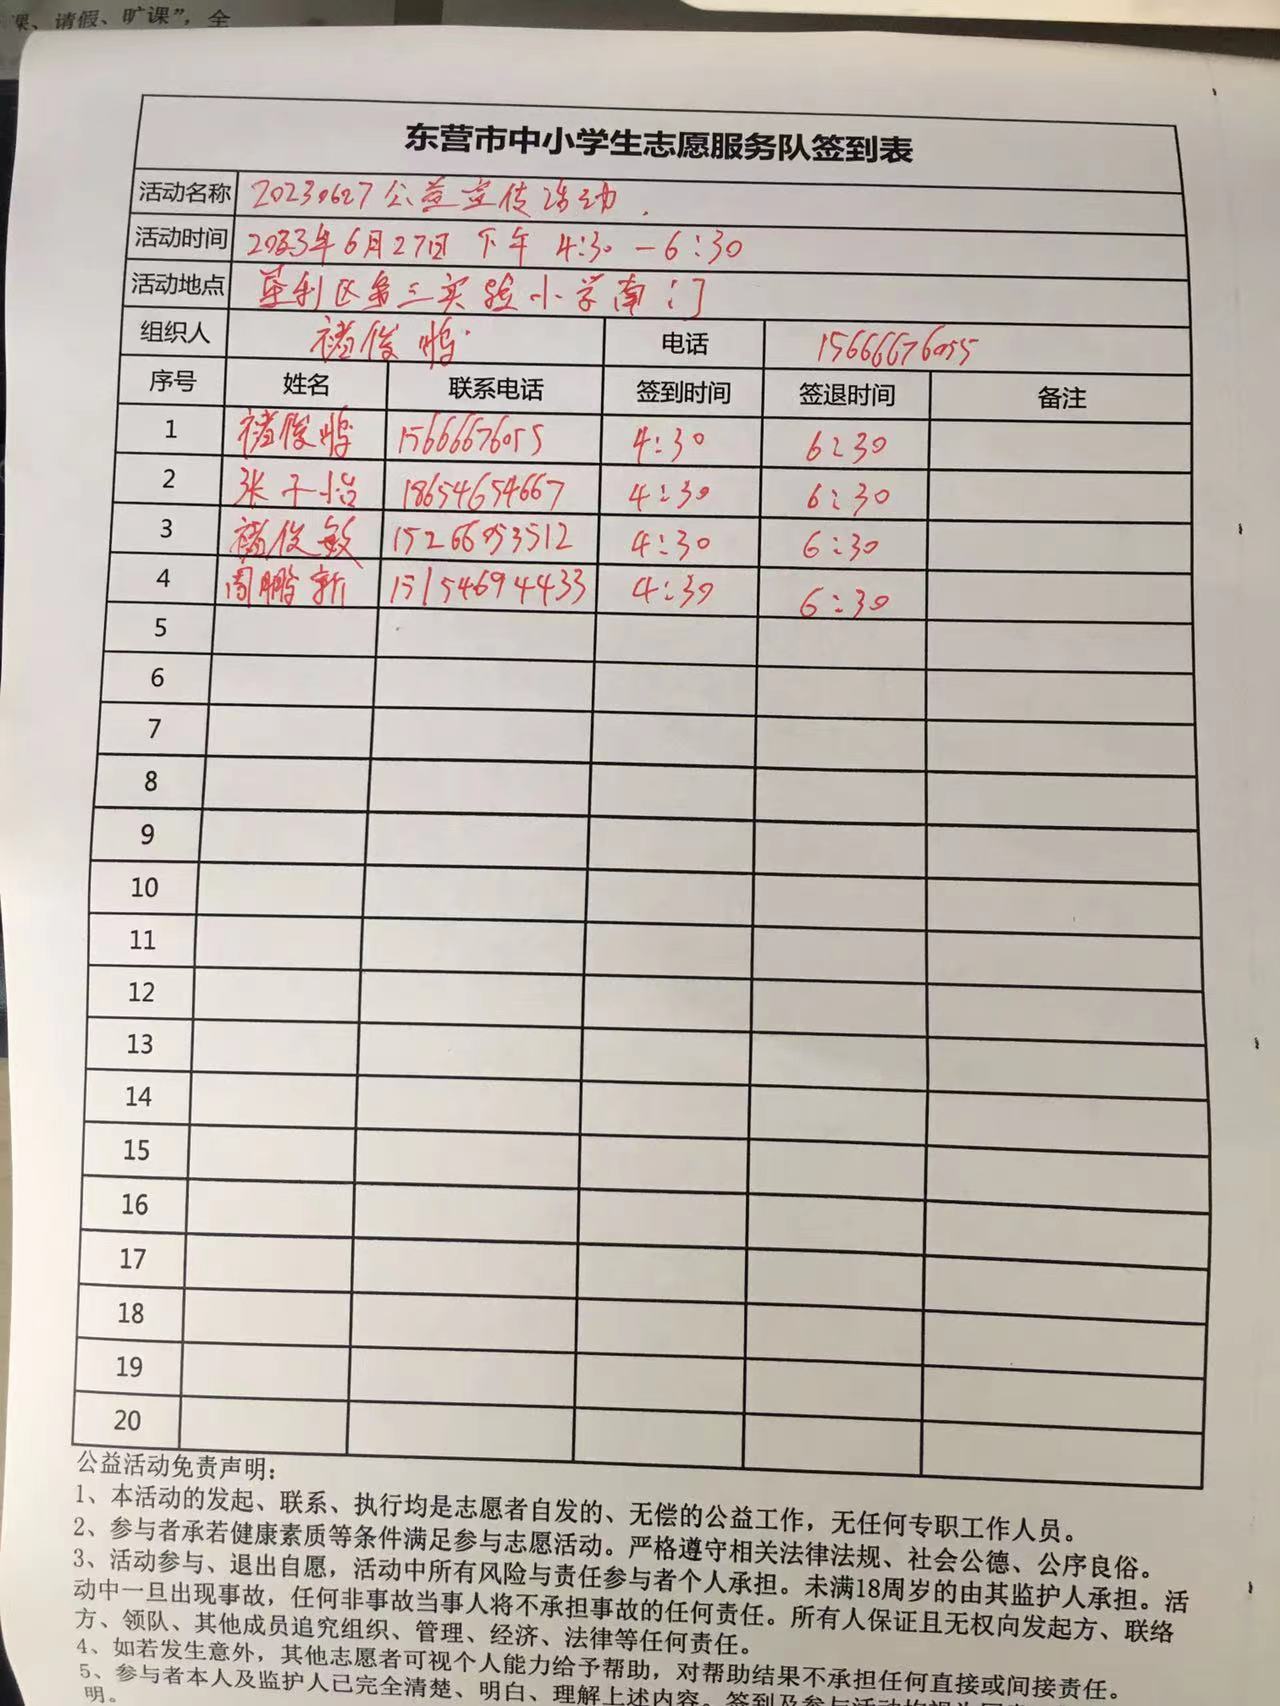 课、请假、旷课”，全
东营市中小学生志愿服务队签到表
活动名称 20230627公益宣传活动.
活动时间 2023年6月27日 下午 4:30-6:30
活动地点 垦利区第三实验小学南门
组织人 褚俊鸣 电话 15666676055
序号 姓名 联系电话 签到时间 签退时间 备注
1 褚俊鸣 15666676055 4:30 6:30
2 张子怡 18654654667 4:30 6:30
3 褚俊敏 15266953512 4:30 6:30
4 周鹏新 15154694433 4:30 6:30
5
6
7
8
9
10
11
12
13
14
15
16
17
18
19
20
公益活动免责声明：
1、本活动的发起、联系、执行均是志愿者自发的、无偿的公益工作，无任何专职工作人员。
2、参与者承若健康素质等条件满足参与志愿活动。严格遵守相关法律法规、社会公德、公序良俗。
3、活动参与、退出自愿，活动中所有风险与责任参与者个人承担。未满18周岁的由其监护人承担。活
动中一旦出现事故，任何非事故当事人将不承担事故的任何责任。所有人保证且无权向发起方、联络
方、领队、其他成员追究组织、管理、经济、法律等任何责任。
4、如若发生意外，其他志愿者可视个人能力给予帮助，对帮助结果不承担任何直接或间接责任。
5、参与者本人及监护人已完全清楚、明白、理解上述内容。签到及参与活动均视为
明。